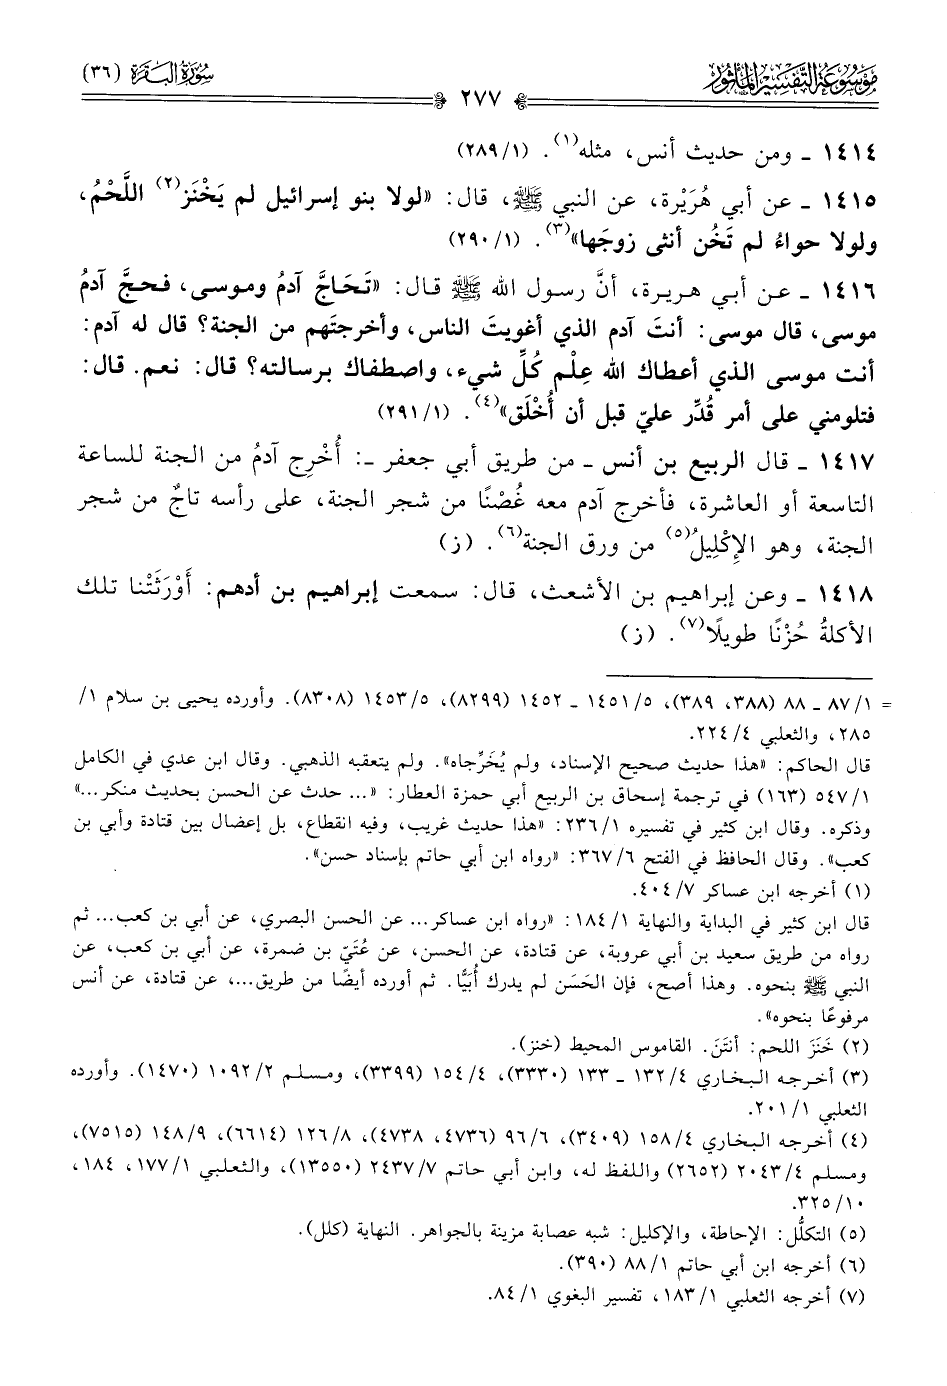 مَوْسُوعَة التَّفْسِير المَأْثُور
سُورَة البَقَرَة (٣٦)
٢٧٧
١٤١٤ ـ ومن حديث أنس، مثله(١). (٢٨٩/١)
١٤١٥ ـ عن أبي هُرَيْرة، عن النبي ﷺ، قال: «لولا بنو إسرائيل لم يَخْنَز(٢) اللَّحْمُ،
ولولا حواءُ لم تَخُن أنثى زوجَها»(٣). (٢٩٠/١)
١٤١٦ ـ عن أبي هريرة، أنَّ رسول الله ﷺ قال: «تَحَاجَّ آدمُ وموسى، فحجَّ آدمُ
موسى، قال موسى: أنتَ آدم الذي أغويتَ الناس، وأخرجتَهم من الجنة؟ قال له آدم:
أنت موسى الذي أعطاك الله عِلْم كُلِّ شيء، واصطفاك برسالته؟ قال: نعم. قال:
فتلومني على أمر قُدِّر عليّ قبل أن أُخْلَق»(٤). (٢٩١/١)
١٤١٧ ـ قال الربيع بن أنس ـ من طريق أبي جعفر ـ: أُخْرِج آدمُ من الجنة للساعة
التاسعة أو العاشرة، فأخرج آدم معه غُصْنًا من شجر الجنة، على رأسه تاجٌ من شجر
الجنة، وهو الإكْلِيلُ(٥) من ورق الجنة(٦). (ز)
١٤١٨ ـ وعن إبراهيم بن الأشعث، قال: سمعت إبراهيم بن أدهم: أَوْرَثَتْنا تلك
الأكلةُ حُزْنًا طويلًا(٧). (ز)
= ٨٧/١ ـ ٨٨ (٣٨٨، ٣٨٩)، ١٤٥١/٥ ـ ١٤٥٢ (٨٢٩٩)، ١٤٥٣/٥ (٨٣٠٨). وأورده يحيى بن سلام ١/
٢٨٥، والثعلبي ٢٢٤/٤.
قال الحاكم: «هذا حديث صحيح الإسناد، ولم يُخَرِّجاه». ولم يتعقبه الذهبي. وقال ابن عدي في الكامل
٥٤٧/١ (١٦٣) في ترجمة إسحاق بن الربيع أبي حمزة العطار: «... حدث عن الحسن بحديث منكر...»
وذكره. وقال ابن كثير في تفسيره ٢٣٦/١: «هذا حديث غريب، وفيه انقطاع، بل إعضال بين قتادة وأبي بن
كعب». وقال الحافظ في الفتح ٣٦٧/٦: «رواه ابن أبي حاتم بإسناد حسن».
(١) أخرجه ابن عساكر ٤٠٤/٧.
قال ابن كثير في البداية والنهاية ١٨٤/١: «رواه ابن عساكر... عن الحسن البصري، عن أبي بن كعب... ثم
رواه من طريق سعيد بن أبي عروبة، عن قتادة، عن الحسن، عن عُتَيّ بن ضمرة، عن أبي بن كعب، عن
النبي ﷺ بنحوه. وهذا أصح، فإن الحَسَن لم يدرك أُبَيًّا. ثم أورده أيضًا من طريق...، عن قتادة، عن أنس
مرفوعًا بنحوه».
(٢) خَنَزَ اللحم: أنتَنَ. القاموس المحيط (خنز).
(٣) أخرجه البخاري ١٣٢/٤ ـ ١٣٣ (٣٣٣٠)، ١٥٤/٤ (٣٣٩٩)، ومسلم ١٠٩٢/٢ (١٤٧٠). وأورده
الثعلبي ٢٠١/١.
(٤) أخرجه البخاري ١٥٨/٤ (٣٤٠٩)، ٩٦/٦ (٤٧٣٦، ٤٧٣٨)، ١٢٦/٨ (٦٦١٤)، ١٤٨/٩ (٧٥١٥)،
ومسلم ٢٠٤٣/٤ (٢٦٥٢) واللفظ له، وابن أبي حاتم ٢٤٣٧/٧ (١٣٥٥٠)، والثعلبي ١٧٧/١، ١٨٤،
٣٢٥/١٠.
(٥) التكلُّل: الإحاطة، والإكليل: شبه عصابة مزينة بالجواهر. النهاية (كلل).
(٦) أخرجه ابن أبي حاتم ٨٨/١ (٣٩٠).
(٧) أخرجه الثعلبي ١٨٣/١، تفسير البغوي ٨٤/١.